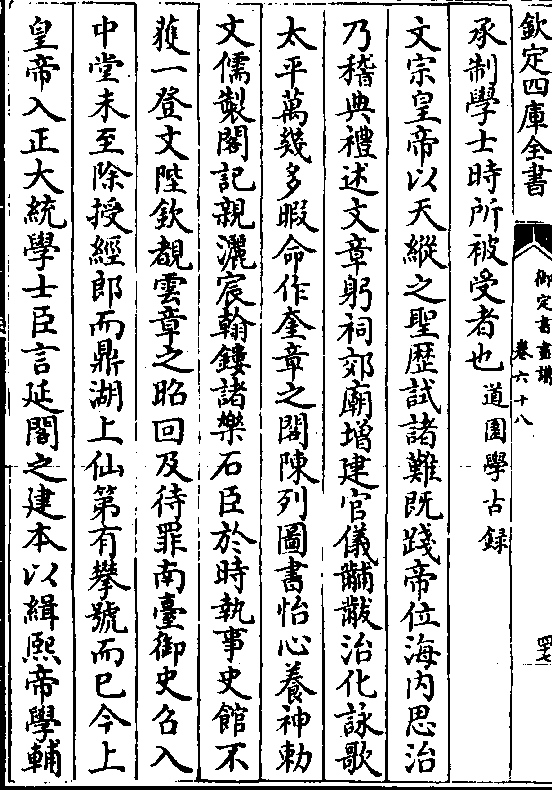 欽定四庫全書
御定書畫譜
卷六十八
四十七
承制學士時所被受者也道園學古録
文宗皇帝以天縱之聖歴試諸難既踐帝位海内思治
乃稽典禮述文章躬祠郊廟增建官儀黼黻治化詠歌
太平萬幾多暇命作奎章之閣陳列圖書怡心養神勅
文儒製閣記親灑宸翰鏤諸樂石臣於時執事史館不
獲一登文陛欽覩雲章之昭回及待罪南臺御史召入
中堂未至除授經郎而鼎湖上仙第有攀號而已今上
皇帝入正大統學士臣言延閣之建本以緝熙帝學輔